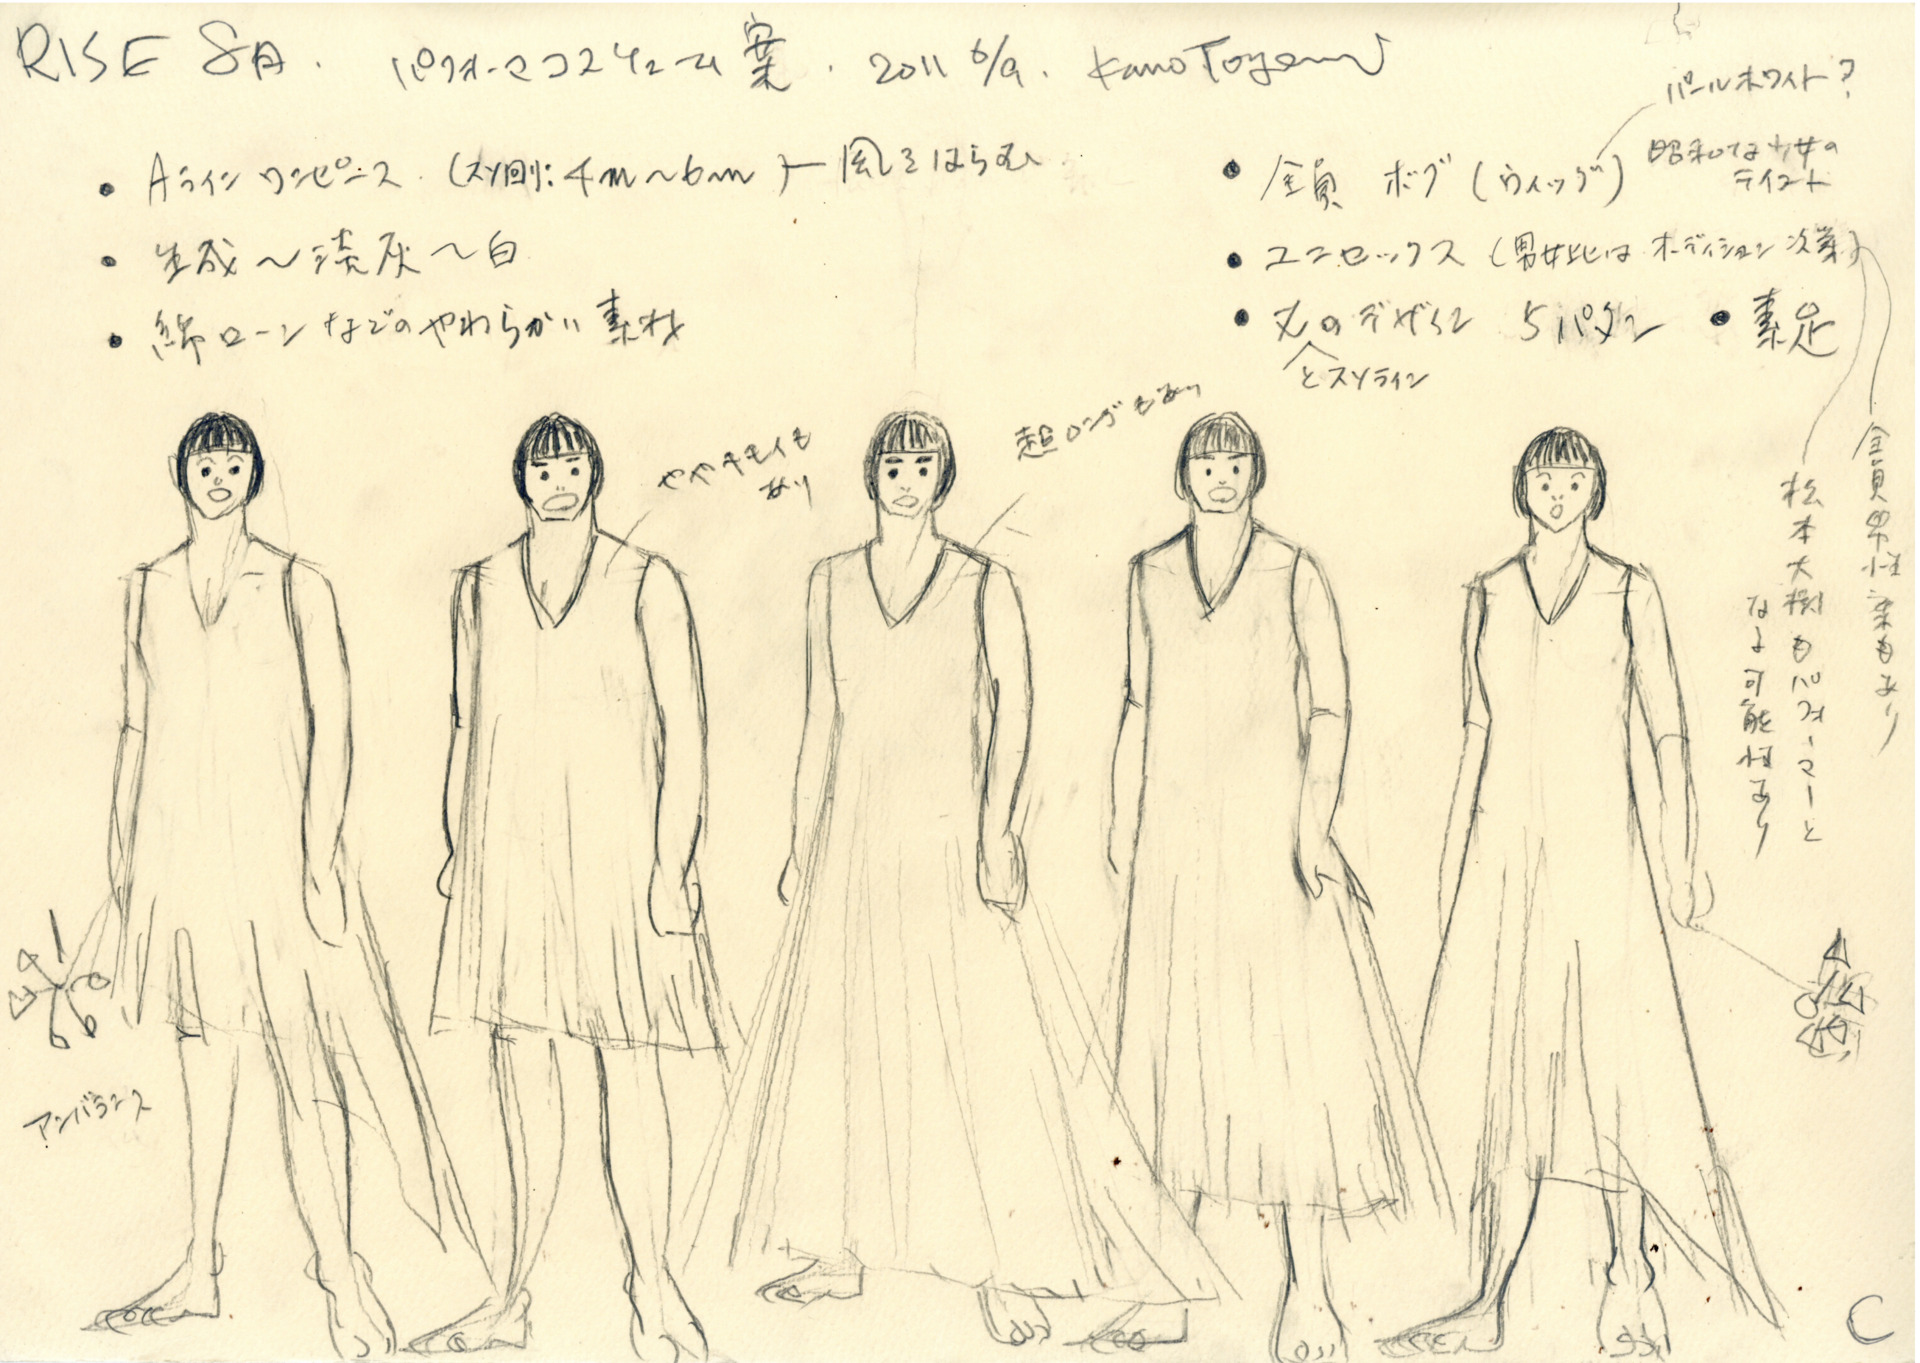 RISE SA. パフォーマコスチューム案. 2011 6/9. Kano Toyama
• Aライン ワンピース (スソ回り: 4m〜6m) ― 風をはらむ
• 生成〜淡灰〜白
• 綿ローンなどのやわらかい素材
パールホワイト?
• 全員 ボブ (ウィッグ) 昭和な少女の
テイスト
• ユニセックス (男女比は オーディション次第)
• 丈のデザイン 5パタン • 素足
とスソライン
やや キモイも
あり
超ロングもあり
全員男性案もあり
松本大樹もパフォーマーと
なる可能性あり
アンバランス
C